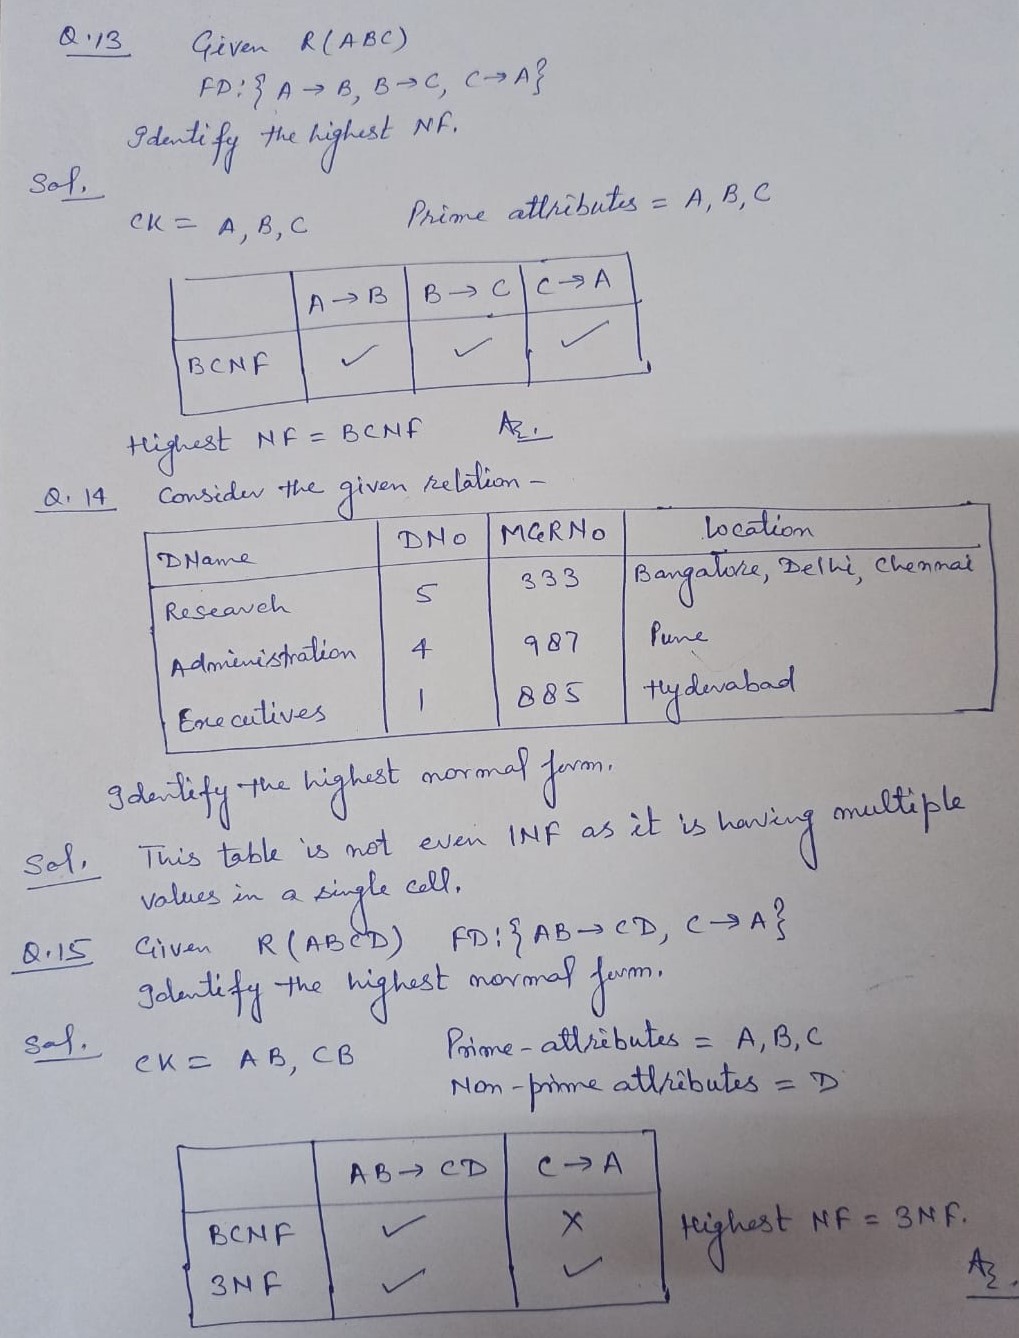 Q.13 Given R(ABC)
FD:{ A → B, B → C, C → A}
Identify the highest NF.
Sol.
CK = A, B, C Prime attributes = A, B, C
A → B B → C C → A
BCNF ✓ ✓ ✓
Highest NF = BCNF
Q.14 Consider the given relation -
DName DNo MGRNo Location
Research 5 333 Bangalore, Delhi, Chennai
Administration 4 987 Pune
Executives 1 885 Hyderabad
Identify the highest normal form.
Sol. This table is not even 1NF as it is having multiple
values in a single cell.
Q.15 Given R(ABCD) FD:{ AB → CD, C → A}
Identify the highest normal form.
Sol.
CK = AB, CB Prime-attributes = A, B, C
Non-prime attributes = D
AB → CD C → A
BCNF ✓ ×
3NF ✓ ✓
Highest NF = 3NF.